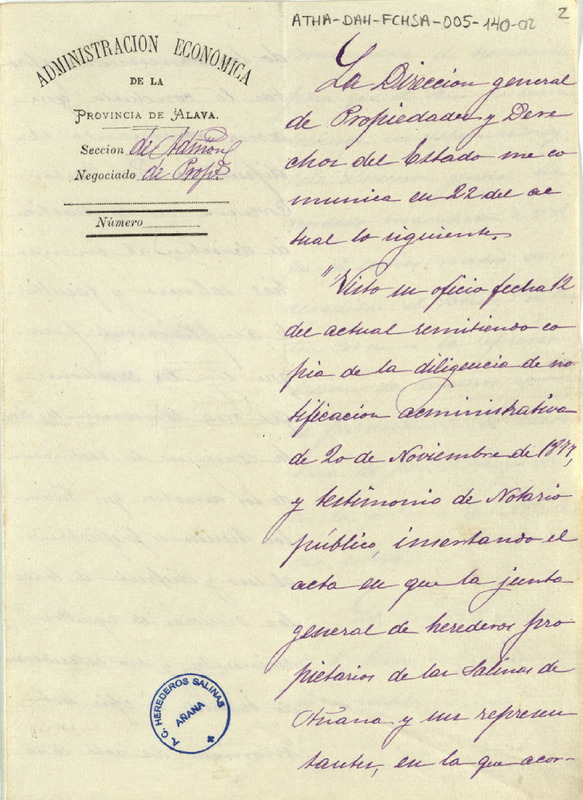 ATHA-DAH-FCHSA-005-140-02
2
ADMINISTRACION ECONÓMICA
DE LA
PROVINCIA DE ALAVA.
Seccion de Admon
Negociado de Props
Número
La Direccion general
de Propiedades y Dere
chos del Estado me co
munica en 22 del ac
tual lo siguiente.
"Visto su oficio fecha 12
del actual remitiendo co
pia de la diligencia de no
tificacion administrativa
de 20 de Noviembre de 1877,
y testimonio de Notario
público, insertando el
acta en que la junta
general de herederos pro
pietarios de las Salinas de
Añana y sus represen
tantes, en la que acor-
A. C. HEREDEROS SALINAS
AÑANA